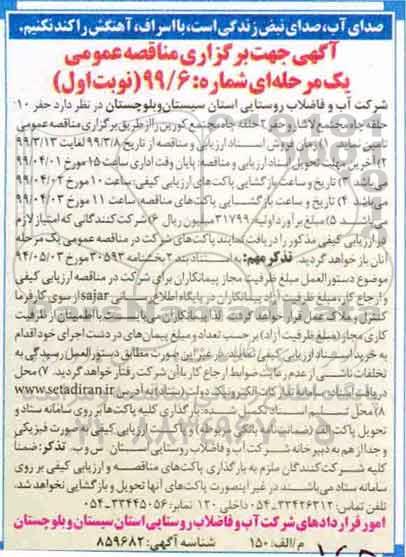 صدای آب، صدای نبض زندگی است، با اسراف، آهنگش را کند نکنیم.
آگهی جهت برگزاری مناقصه عمومی
یک مرحله‌ای شماره: ۹۹/۶ (نوبت اول)
شرکت آب و فاضلاب روستایی استان سیستان و بلوچستان در نظر دارد حفر ۱۰
حلقه چاه مجتمع لاشار و حفر ۲ حلقه چاه مجتمع کورین را از طریق برگزاری مناقصه عمومی
تامین نماید. ۱) زمان فروش اسناد ارزیابی و مناقصه از تاریخ ۹۹/۳/۸ لغایت ۹۹/۳/۱۳
۲) آخرین مهلت تحویل اسناد ارزیابی و مناقصه: پایان وقت اداری ساعت ۱۵ مورخ ۹۹/۰۴/۰۱
می‌باشد ۳) تاریخ و ساعت بازگشایی پاکت‌های ارزیابی کیفی: ساعت ۱۰ مورخ ۹۹/۰۴/۰۲
می‌باشد ۴) تاریخ و ساعت بازگشایی پاکت‌های مناقصه ساعت ۱۱ مورخ ۹۹/۰۴/۰۳
می‌باشد ۵) مبلغ برآورد اولیه: ۳۱۷۹۹ میلیون ریال ۶) شرکت کنندگانی که امتیاز لازم
در ارزیابی کیفی مذکور را دریافت نمایند پاکت‌های شرکت در مناقصه عمومی یک مرحله
آنان باز خواهد گردید. تذکر مهم: به استناد بند ۲ بخشنامه ۳۰۵۹۳ مورخ ۹۴/۰۵/۰۳
موضوع دستورالعمل مبلغ ظرفیت مجاز پیمانکاران برای شرکت در مناقصه ارزیابی کیفی
و ارجاع کار، مبلغ ظرفیت آزاد پیمانکاران در پایگاه اطلاع رسانی sajar از سوی کارفرما
کنترل و ملاک عمل قرار خواهد گرفت. لذا پیمانکاران می‌بایست با اطمینان از ظرفیت
کاری مجاز (مبلغ ظرفیت آزاد) بر حسب تعداد و مبلغ پیمان‌های در دست اجرای خود اقدام
به خرید اسناد ارزیابی کیفی نمایند. در غیر این صورت مطابق دستورالعمل رسیدگی به
تخلفات ناشی از عدم رعایت ضوابط ارجاع کار با آن شرکت رفتار خواهد گردید. ۷) محل
دریافت اسناد سامانه تدارکات الکترونیک دولت (ستاد) به آدرس www.setadiran.ir
۸) محل تسلیم اسناد تکمیل شده: بارگذاری کلیه پاکت‌ها بر روی سامانه ستاد و
تحویل پاکت الف (ضمانت‌نامه بانکی مربوطه) و پاکت ارزیابی کیفی به صورت فیزیکی
و جدا از هم به دبیرخانه شرکت آب و فاضلاب روستایی استان س و ب. تذکر: ضمنا
کلیه شرکت‌کنندگان ملزم به بارگذاری پاکت‌های مناقصه و ارزیابی کیفی بر روی
سامانه ستاد می‌باشند در غیر اینصورت پاکت‌های آنها تحویل و بازگشایی نخواهد شد.
تلفن تماس: ۳۳۴۲۶۳۱۲-۰۵۴ داخلی ۱۲۰ نمابر: ۳۳۴۴۵۰۵۶-۰۵۴
امور قراردادهای شرکت آب و فاضلاب روستایی استان سیستان و بلوچستان
م/الف: ۱۵۰ شناسه آگهی: ۸۵۹۶۸۲